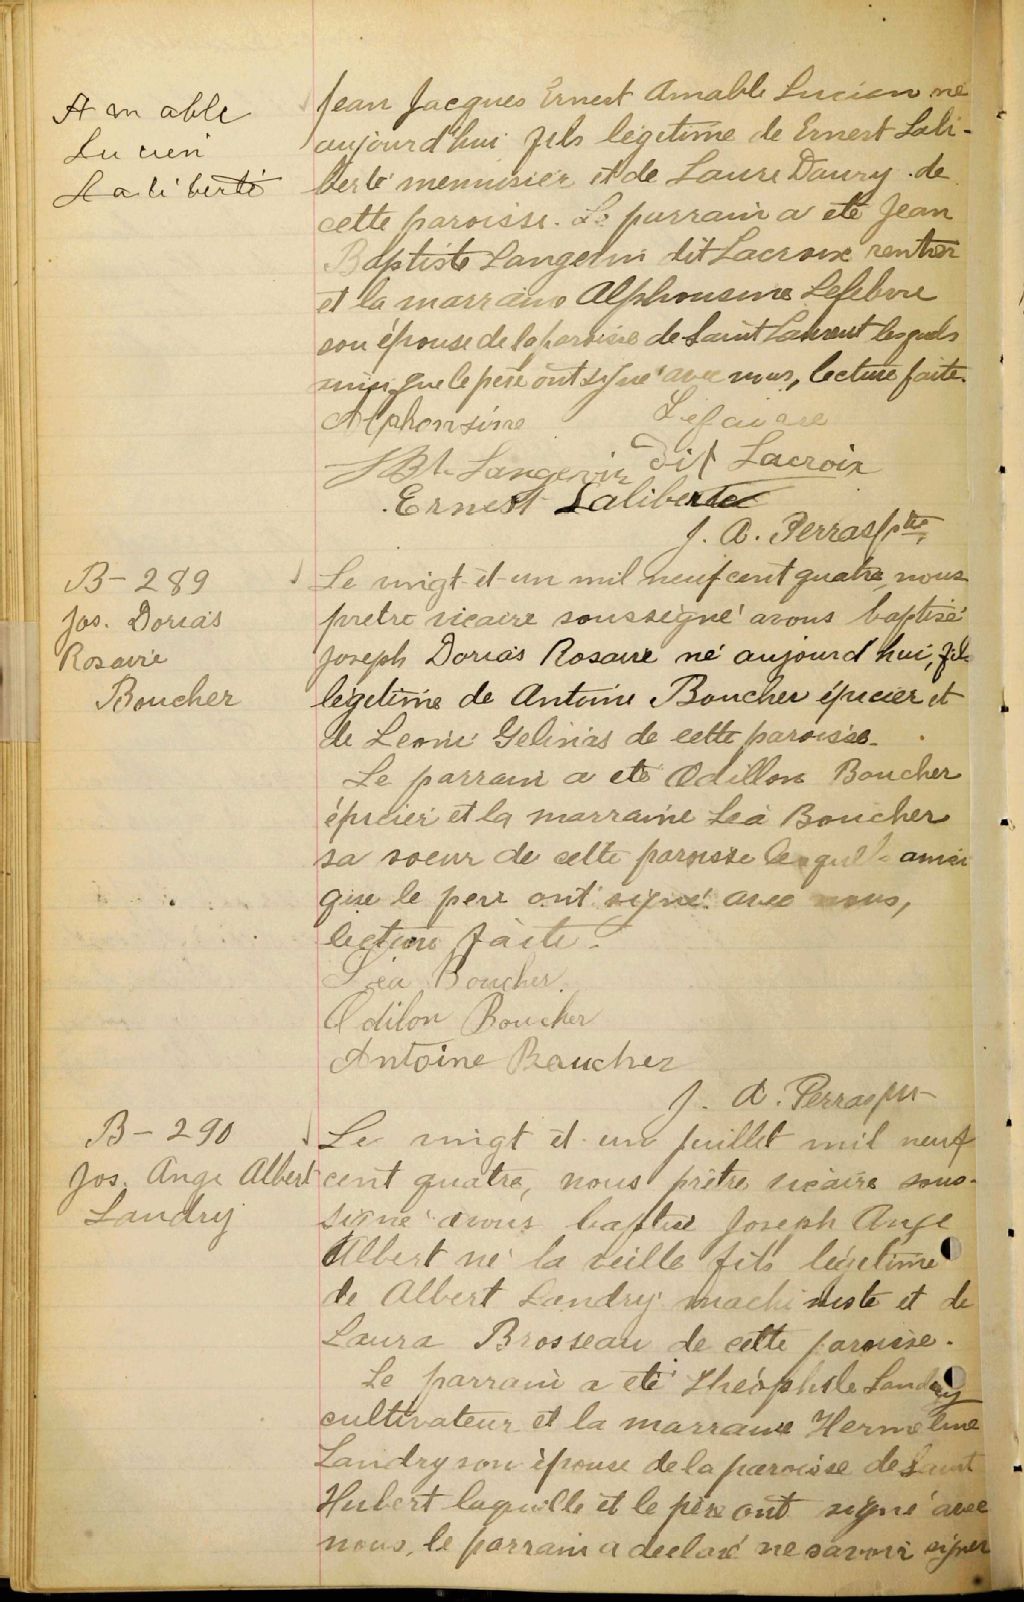 Amable
Lucien
Laliberté
Jean Jacques Ernest Amable Lucien né
aujourd'hui fils légitime de Ernest Lali-
berté menuisier et de Laure Daury de
cette paroisse. Le parrain a été Jean
Baptiste Langevin dit Lacroix rentier
et la marraine Alphonsine Lefebvre
son épouse de la paroisse de Saint Laurent lesquels
ainsi que le père ont signé avec nous, lecture faite.
Alphonsine
J Bt Langevin dit Lacroix
Ernest Laliberté
J. A. Perras ptre,
B-289
Jos. Dorias
Rosaire
Boucher
Le vingt-et-un mil neuf cent quatre, nous
prêtre vicaire soussigné avons baptisé
Joseph Dorias Rosaire né aujourd'hui, fils
légitime de Antoine Boucher épicier et
de Leonie Gelinas de cette paroisse.
Le parrain a été Odillon Boucher
épicier et la marraine Léa Boucher
sa soeur de cette paroisse ainsi
que le père ont signé avec nous,
lecture faite.
Léa Boucher.
Odilon Boucher
Antoine Boucher
J. A. Perras ptr
B-290
Jos. Ange Albert
Landry
Le vingt et un juillet mil neuf
cent quatre, nous prêtre vicaire sous-
signé avons baptisé Joseph Ange
Albert né la veille fils légitime
de Albert Landry machiniste et de
Laura Brosseau de cette paroisse.
Le parrain a été Théophile Landry
cultivateur et la marraine Hermeline
Landry son épouse de la paroisse de Saint
Hubert laquelle et le père ont signé avec
nous, le parrain a déclaré ne savoir signer